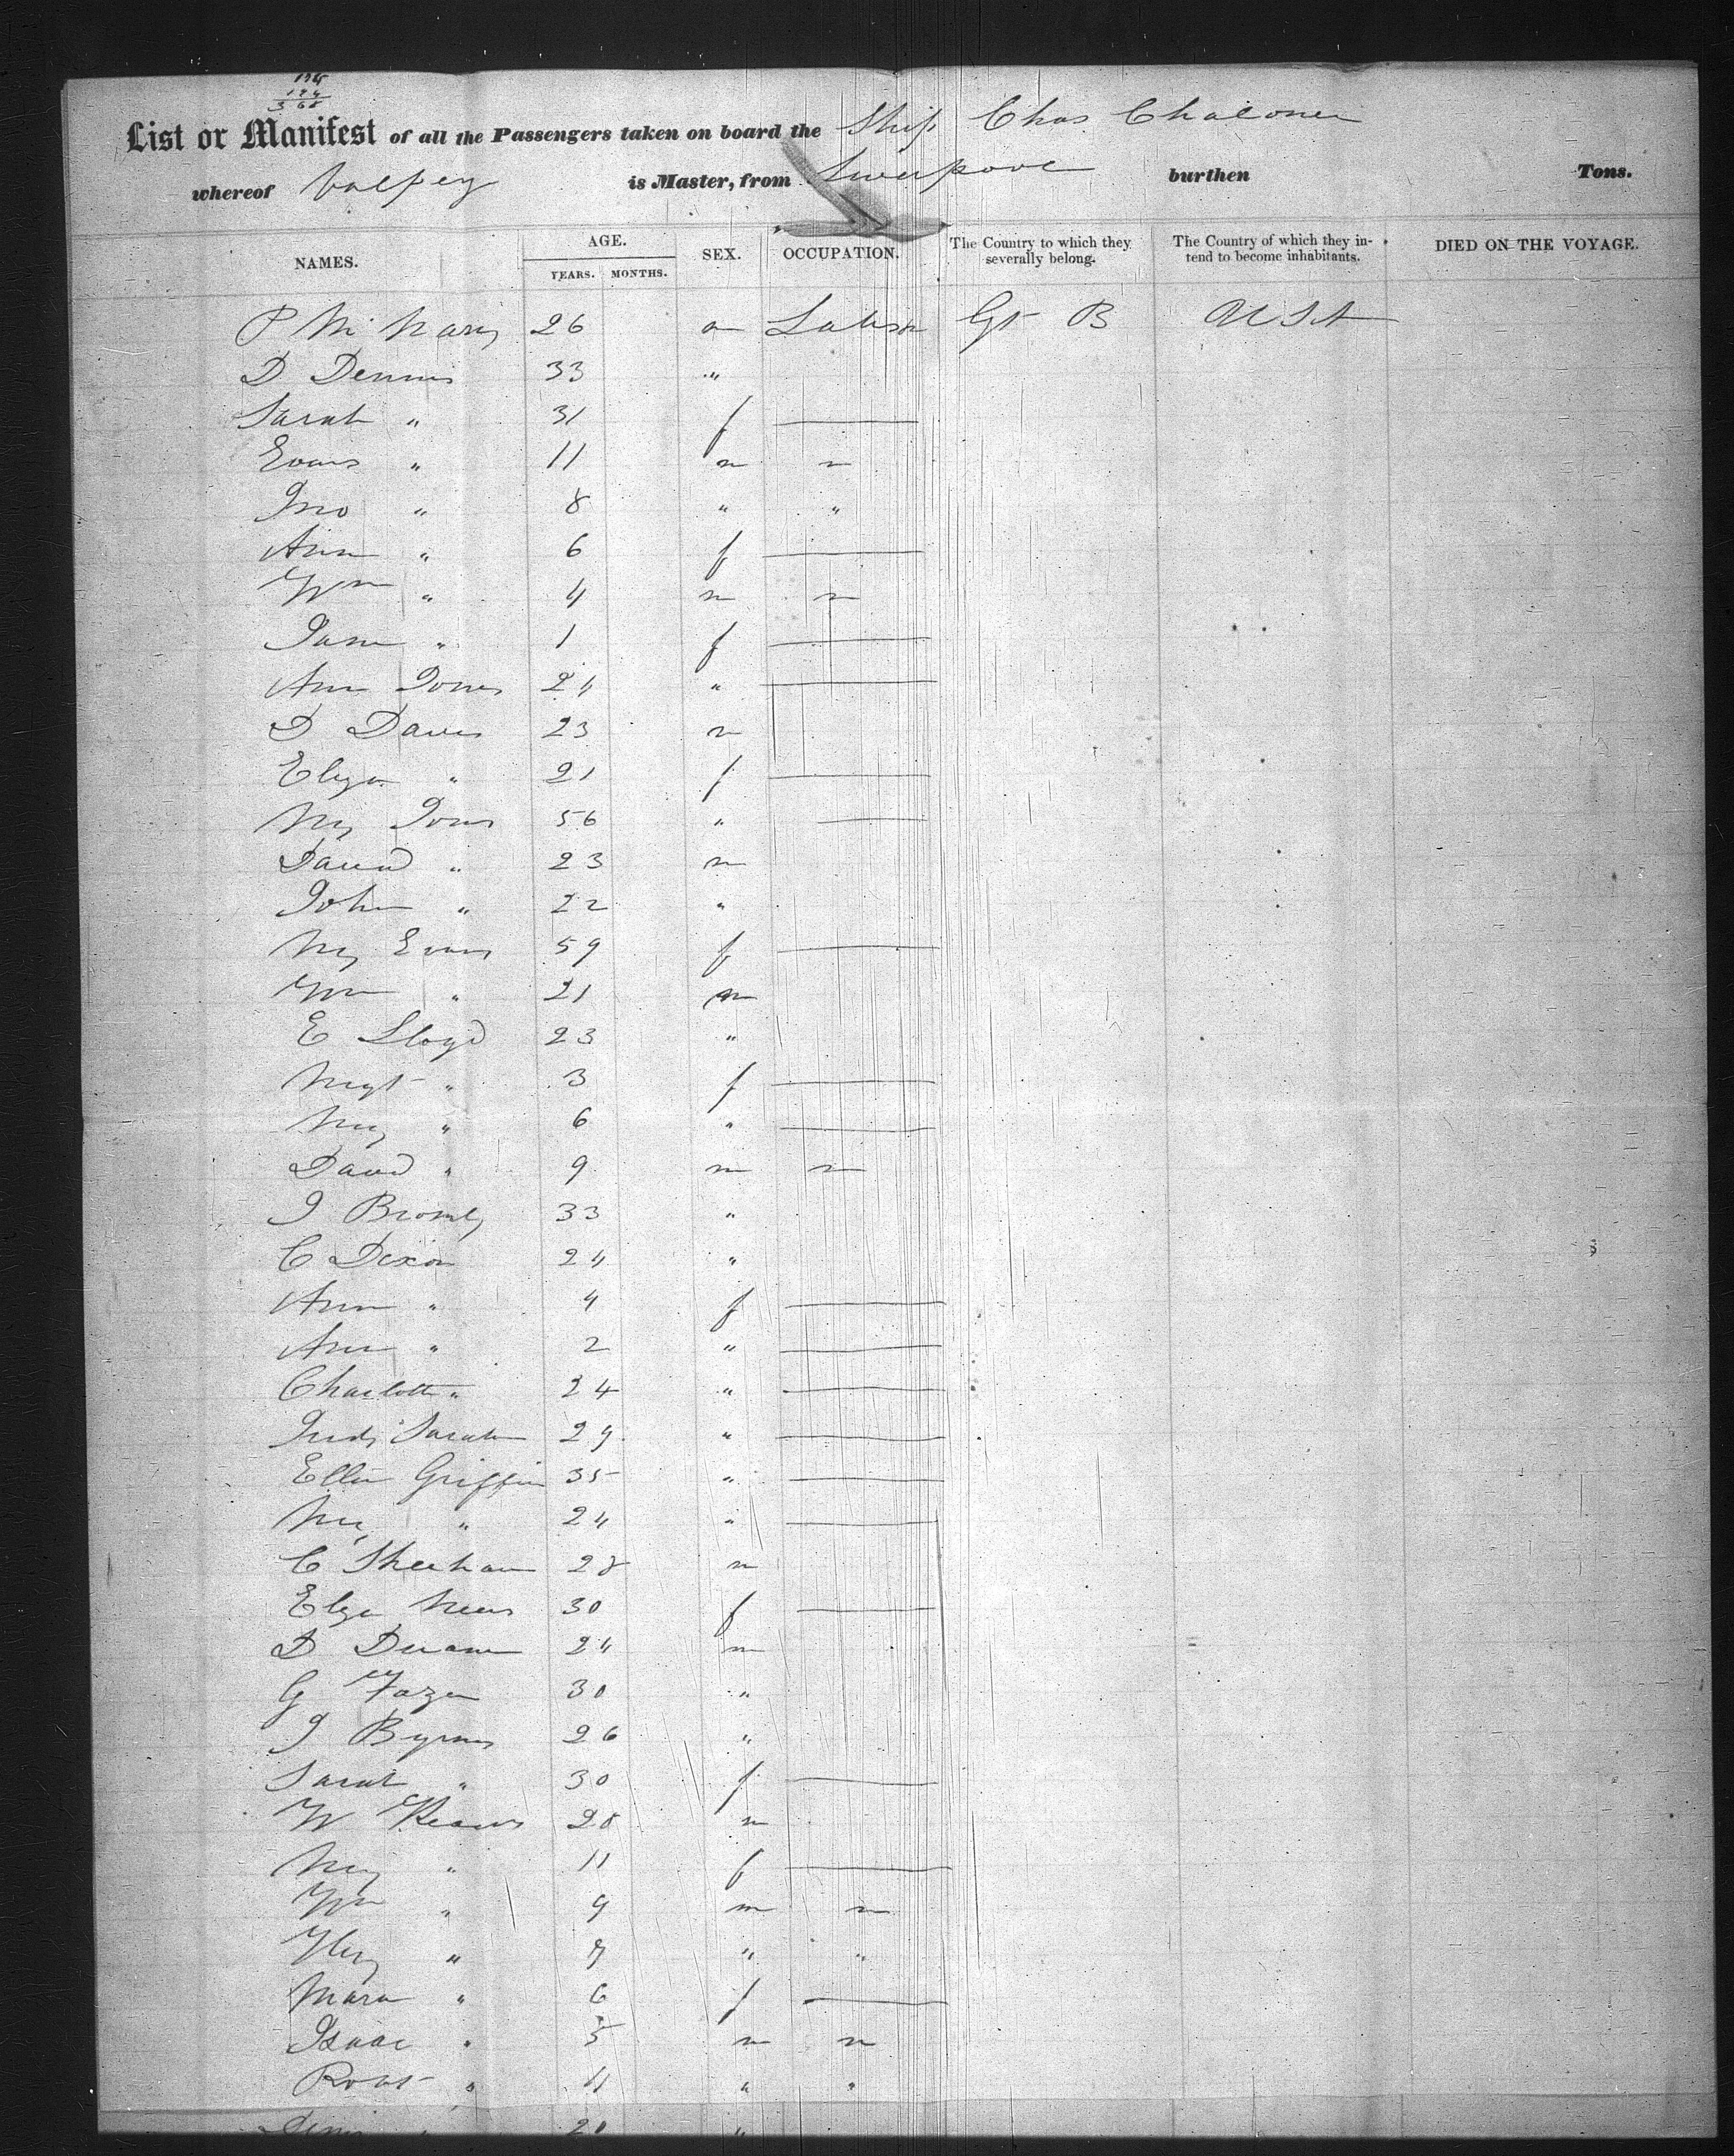 368
List or Manifest of all the Passengers taken on board the Ship Chas Chaloner
whereof Valpey is Master, from Liverpool burthen Tons.
NAMES. AGE. YEARS. MONTHS. SEX. OCCUPATION. The Country to which they severally belong. The Country of which they intend to become inhabitants. DIED ON THE VOYAGE.
P 26 m Labor Gt B USA
D Dennis 33 "
Sarah " 31 f —
Evans " 11 m "
Jno " 8 " "
Ann " 6 f —
Wm " 4 m "
Jane " 1 f —
Ann Jones 24 " —
D Davis 23 m
Eliza " 21 f —
My Jones 56 " —
David " 23 m
John " 22 "
My Evans 59 f —
Wm " 21 m
E Lloyd 23 "
Mgt " 3 f —
My " 6 " —
David " 9 m "
J Bromly 33 "
C Dixon 24 "
Ann " 4 f —
Ann " 2 " —
Charlotte " 24 " —
Sarah 29 " —
Ellen Griffin 35 " —
My " 24 " —
C Sheehan 28 m
Eliza 30 f —
D Duane 24 m
G 30 "
J Byrnes 26 "
Sarah " 30 f —
W 28 m
My " 11 f —
Wm " 9 m "
Hy " 7 " "
Mara " 6 f —
Isaac " 5 m "
Robt " 4 " "
" 20 "